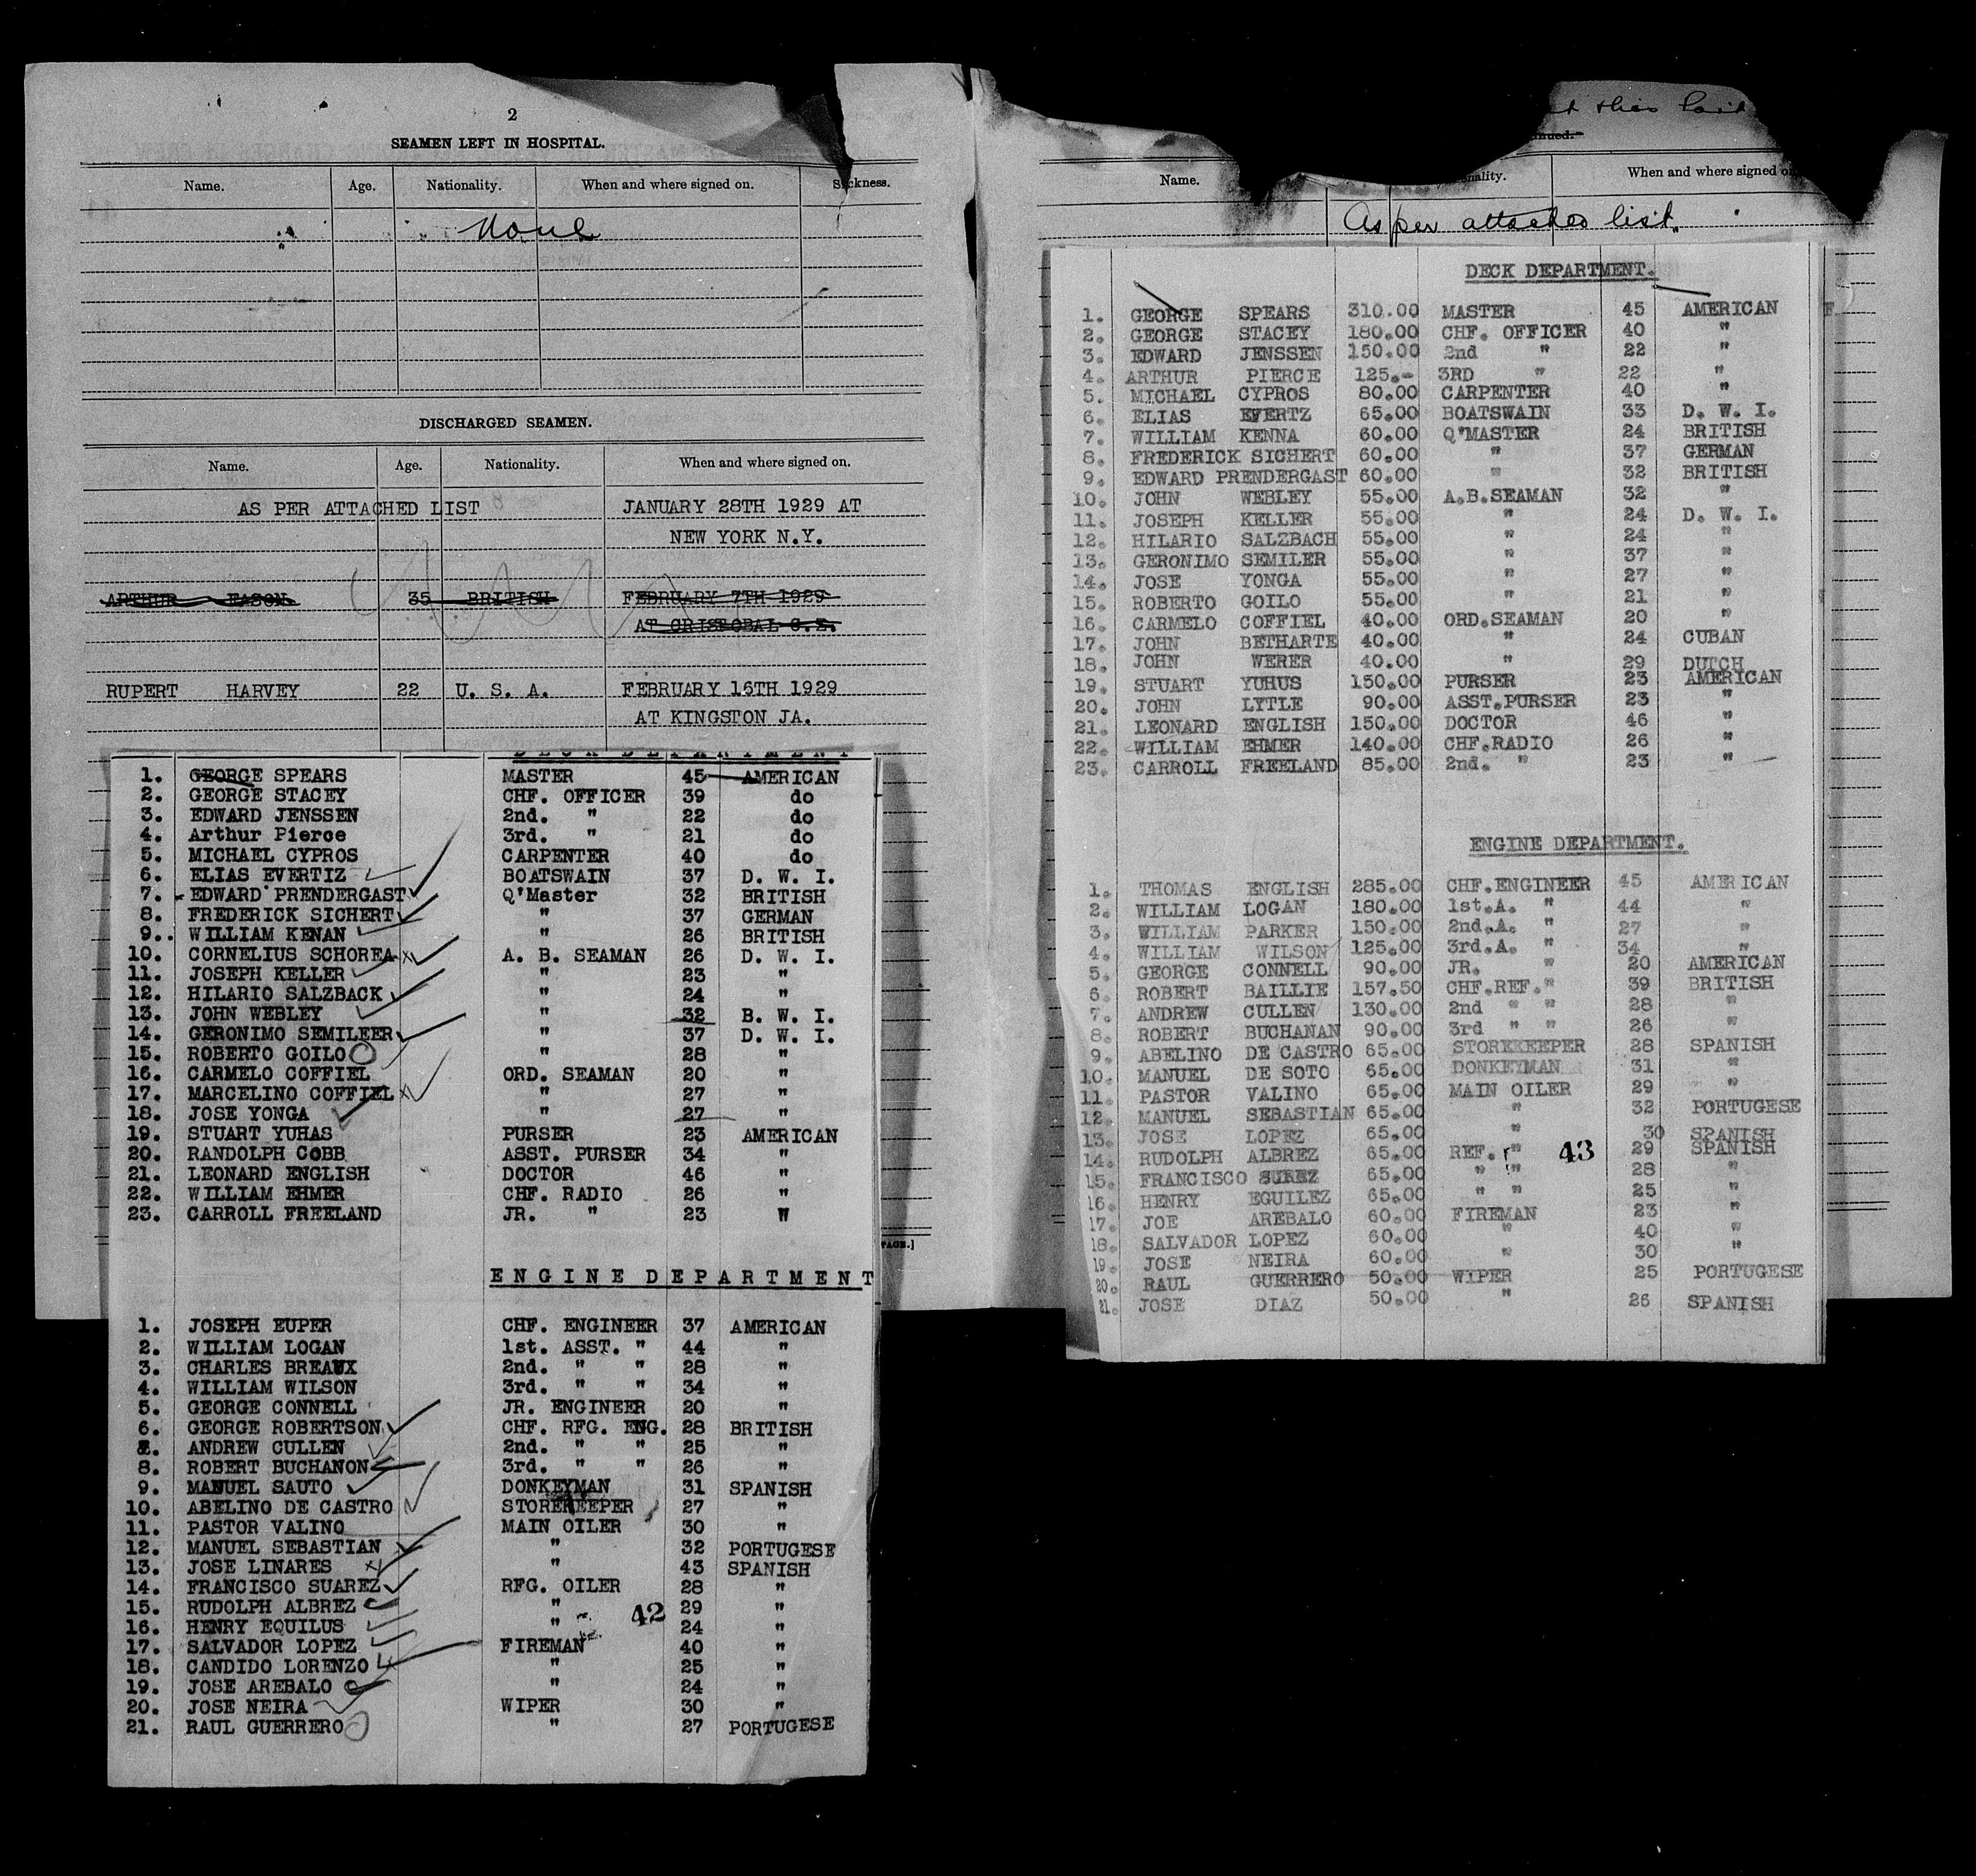 2
SEAMEN LEFT IN HOSPITAL.
Name. Age. Nationality. When and where signed on. Sickness.
None
DISCHARGED SEAMEN.
Name. Age. Nationality. When and where signed on.
AS PER ATTACHED LIST JANUARY 28TH 1929 AT
NEW YORK N.Y.
ARTHUR EASON. 35 BRITISH FEBRUARY 7TH 1929
AT CRISTOBAL C.Z.
RUPERT HARVEY 22 U. S. A. FEBRUARY 16TH 1929
AT KINGSTON JA.
DECK DEPARTMENT
1. GEORGE SPEARS MASTER 45 AMERICAN
2. GEORGE STACEY CHF. OFFICER 39 do
3. EDWARD JENSSEN 2nd. " 22 do
4. Arthur Pierce 3rd. " 21 do
5. MICHAEL CYPROS CARPENTER 40 do
6. ELIAS EVERTIZ BOATSWAIN 37 D. W. I.
7. EDWARD PRENDERGAST Q'Master 32 BRITISH
8. FREDERICK SICHERT " 37 GERMAN
9.. WILLIAM KENAN " 26 BRITISH
10. CORNELIUS SCHOREA A. B. SEAMAN 26 D. W. I.
11. JOSEPH KELLER " 23 "
12. HILARIO SALZBACK " 24 "
13. JOHN WEBLEY " 32 B. W. I.
14. GERONIMO SEMILEER " 37 D. W. I.
15. ROBERTO GOILO " 28 "
16. CARMELO COFFIEL ORD. SEAMAN 20 "
17. MARCELINO COFFIEL " 27 "
18. JOSE YONGA " 27 "
19. STUART YUHAS PURSER 23 AMERICAN
20. RANDOLPH COBB ASST. PURSER 34 "
21. LEONARD ENGLISH DOCTOR 46 "
22. WILLIAM EHMER CHF. RADIO 26 "
23. CARROLL FREELAND JR. " 23 "
PAGE.]
ENGINE DEPARTMENT
1. JOSEPH EUPER CHF. ENGINEER 37 AMERICAN
2. WILLIAM LOGAN 1st. ASST. " 44 "
3. CHARLES BREAUX 2nd. " " 28 "
4. WILLIAM WILSON 3rd. " " 34 "
5. GEORGE CONNELL JR. ENGINEER 20 "
6. GEORGE ROBERTSON CHF. RFG. ENG. 28 BRITISH
ANDREW CULLEN 2nd. " " 25 "
8. ROBERT BUCHANON 3rd. " " 26 "
9. MANUEL SAUTO DONKEYMAN 31 SPANISH
10. ABELINO DE CASTRO STOREKEEPER 27 "
11. PASTOR VALINO MAIN OILER 30 "
12. MANUEL SEBASTIAN " 32 PORTUGESE
13. JOSE LINARES " 43 SPANISH
14. FRANCISCO SUAREZ RFG. OILER 28 "
15. RUDOLPH ALBREZ " 42 29 "
16. HENRY EQUILUS " 24 "
17. SALVADOR LOPEZ FIREMAN 40 "
18. CANDIDO LORENZO " 25 "
19. JOSE AREBALO " 24 "
20. JOSE NEIRA WIPER 30 "
21. RAUL GUERRERO " 27 PORTUGESE
this
Name. When and where signed
As per attached list.
DECK DEPARTMENT.
1. GEORGE SPEARS 310.00 MASTER 45 AMERICAN
2. GEORGE STACEY 180.00 CHF. OFFICER 40 "
3. EDWARD JENSSEN 150.00 2nd " 22 "
4. ARTHUR PIERCE 125.- 3RD " 22 "
5. MICHAEL CYPROS 80.00 CARPENTER 40 "
6. ELIAS EVERTZ 65.00 BOATSWAIN 33 D. W. I.
7. WILLIAM KENNA 60.00 Q'MASTER 24 BRITISH
8. FREDERICK SICHERT 60.00 " 37 GERMAN
9. EDWARD PRENDERGAST 60.00 " 32 BRITISH
10. JOHN WEBLEY 55.00 A.B.SEAMAN 32 "
11. JOSEPH KELLER 55.00 " 24 D. W. I.
12. HILARIO SALZBACH 55.00 " 24 "
13. GERONIMO SEMILER 55.00 " 37 "
14. JOSE YONGA 55.00 " 27 "
15. ROBERTO GOILO 55.00 " 21 "
16. CARMELO COFFIEL 40.00 ORD.SEAMAN 20 "
17. JOHN BETHARTE 40.00 " 24 CUBAN
18. JOHN WERER 40.00 " 29 DUTCH
19. STUART YUHUS 150.00 PURSER 23 AMERICAN
20. JOHN LYTLE 90.00 ASST.PURSER 23 "
21. LEONARD ENGLISH 150.00 DOCTOR 46 "
22. WILLIAM EHMER 140.00 CHF.RADIO 26 "
23. CARROLL FREELAND 85.00 2nd. " 23 "
ENGINE DEPARTMENT.
1. THOMAS ENGLISH 285.00 CHF.ENGINEER 45 AMERICAN
2. WILLIAM LOGAN 180.00 1st.A. " 44 "
3. WILLIAM PARKER 150.00 2nd.A. " 27 "
4. WILLIAM WILSON 125.00 3rd.A. " 34 "
5. GEORGE CONNELL 90.00 JR. " 20 AMERICAN
6. ROBERT BAILLIE 157.50 CHF.REF." 39 BRITISH
7. ANDREW CULLEN 130.00 2nd " " 28 "
8. ROBERT BUCHANAN 90.00 3rd " " 26 "
9. ABELINO DE CASTRO 65.00 STOREKEEPER 28 SPANISH
10. MANUEL DE SOTO 65.00 DONKEYMAN 31 "
11. PASTOR VALINO 65.00 MAIN OILER 29 "
12. MANUEL SEBASTIAN 65.00 " 32 PORTUGESE
13. JOSE LOPEZ 65.00 " 30 SPANISH
14. RUDOLPH ALBREZ 65.00 REF. " 43 29 SPANISH
15. FRANCISCO SUREZ 65.00 " " 28 "
16. HENRY EGUILEZ 65.00 " " 25 "
17. JOE AREBALO 60.00 FIREMAN 23 "
18. SALVADOR LOPEZ 60.00 " 40 "
19. JOSE NEIRA 60.00 " 30 "
20. RAUL GUERRERO 50.00 WIPER 25 PORTUGESE
21. JOSE DIAZ 50.00 " 26 SPANISH